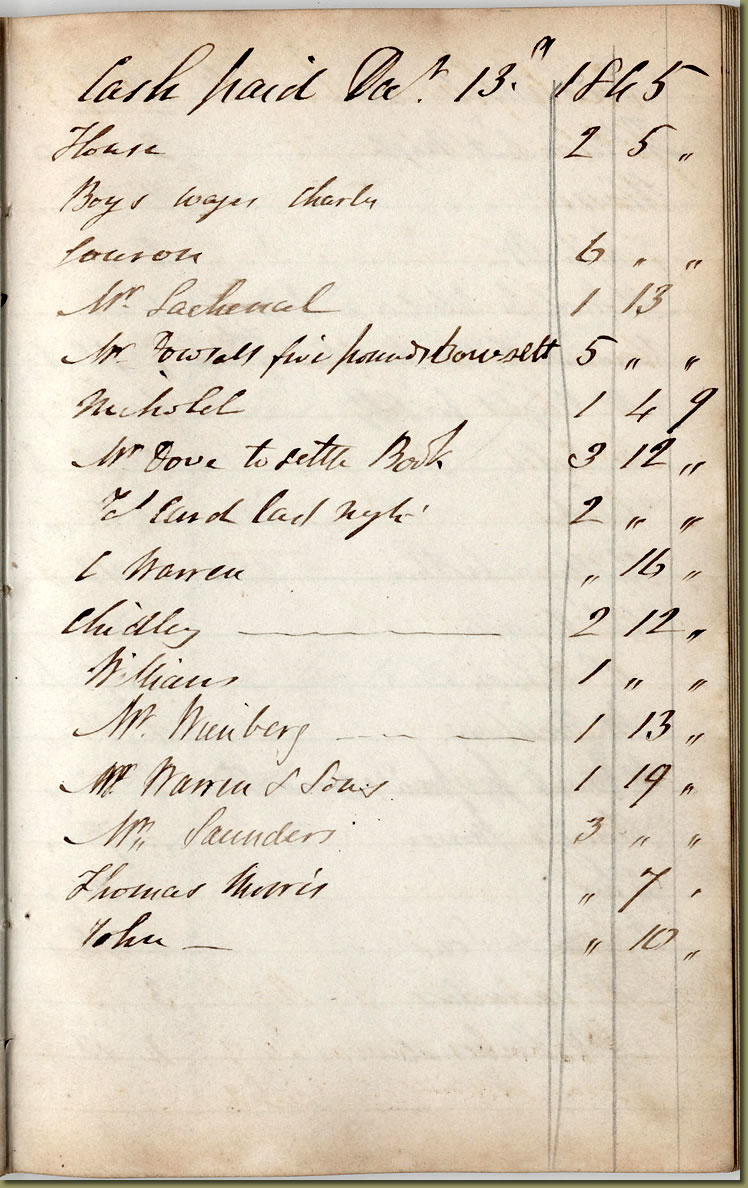 Cash paid Oct. 13. " 1865
House 2 5 "
Boys wages Charles
6 " "
Mr Lachenal 1 13
Mr Dowsett five pounds Dowsett 5 " "
Nickolds 1 4 9
Mr Dove to settle Book 3 12 "
Card last night 2 " "
C Warren " 16 "
Chidley 2 12 "
Williams 1 " "
Mr. Wienberg 1 13 "
Mr Warren & Sons 1 19 "
Mr, Saunders 3 " "
Thomas Morris " 7 "
John — " 10 "